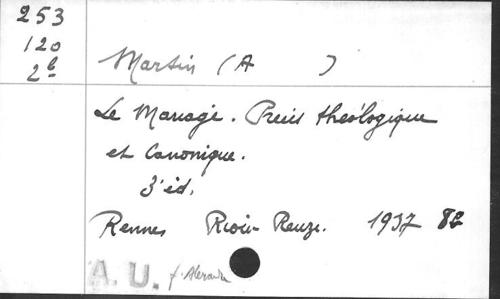 253
120
2b
Martin (A )
Le Mariage. Précis théologique
et Canonique.
3e éd.
Rennes Riou-Reuzé. 1937 8º
A. U.